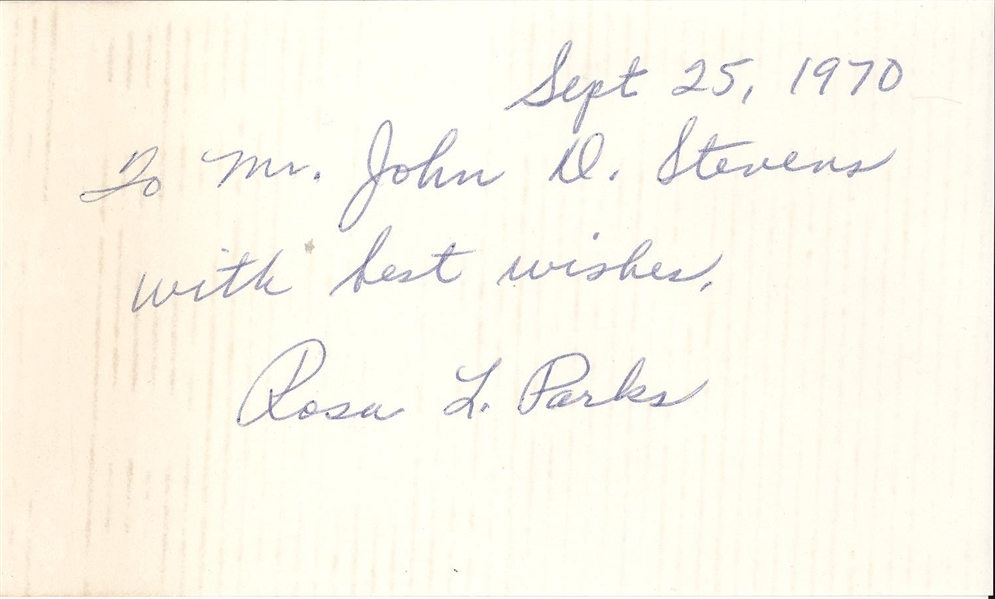 Sept 25, 1970
To Mr. John D. Stevens
with best wishes,
Rosa L. Parks